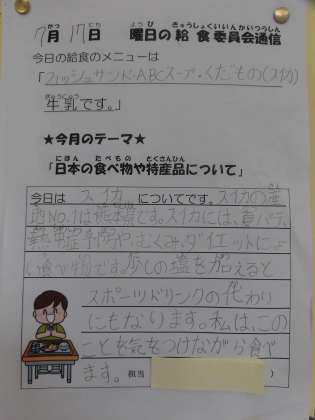 7月17日 曜日の給食委員会通信
今日の給食のメニューは
「フィッシュサンド・ABCスープ・くだもの(スイカ)
牛乳です。」
★今月のテーマ★
「日本の食べ物や特産品について」
今日は スイカ についてです。スイカの産
地NO.1は熊本県です。スイカには、夏バテ、
熱中症予防や、むくみ、ダイエットによ
い食べ物です。少しの塩を加えると
スポーツドリンクの代わり
にもなります。私は、この
ことを気をつけながら食べ
ます。 担当 )